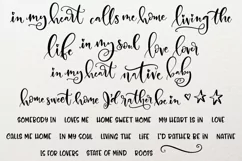 in my heart calls me home living the
life in my soul love lover
in my heart native baby
home sweet home I'd rather be in
SOMEBODY IN LOVES ME HOME SWEET HOME MY HEART IS IN LOVE
CALLS ME HOME IN MY SOUL LIVING THE LIFE I'D RATHER BE IN NATIVE
IS FOR LOVERS STATE OF MIND ROOTS